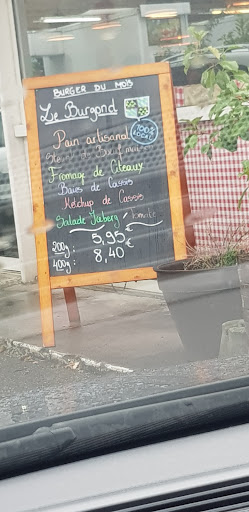 BURGER DU MOIS
Le Burgond
Pain artisanal
100%
Fromage de Cîteaux
Baies de Cassis
Ketchup de Cassis
Salade Iceberg / Tomate
200g : 5,95 €
400g : 8,40 €